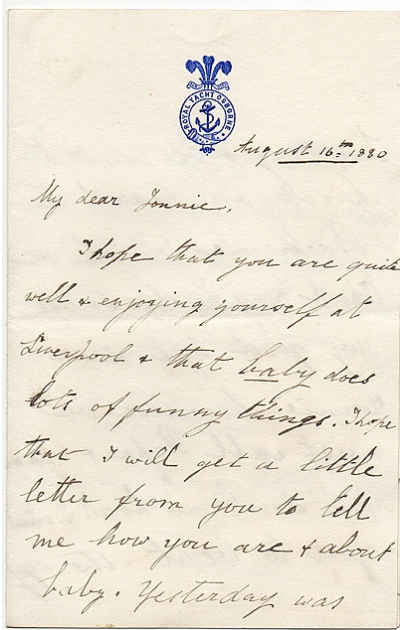 ROYAL YACHT OSBORNE
August 16th 1880
My dear Tonnie,
I hope that you are quite
well & enjoying yourself at
Liverpool & that baby does
lots of funny things. I hope
that I will get a little
letter from you to tell
me how you are & about
baby. Yesterday was